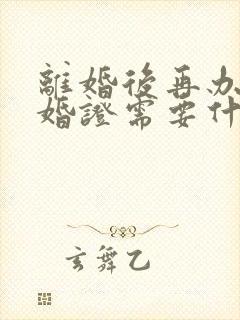 離婚後再办
婚證需要什
玄舞乙